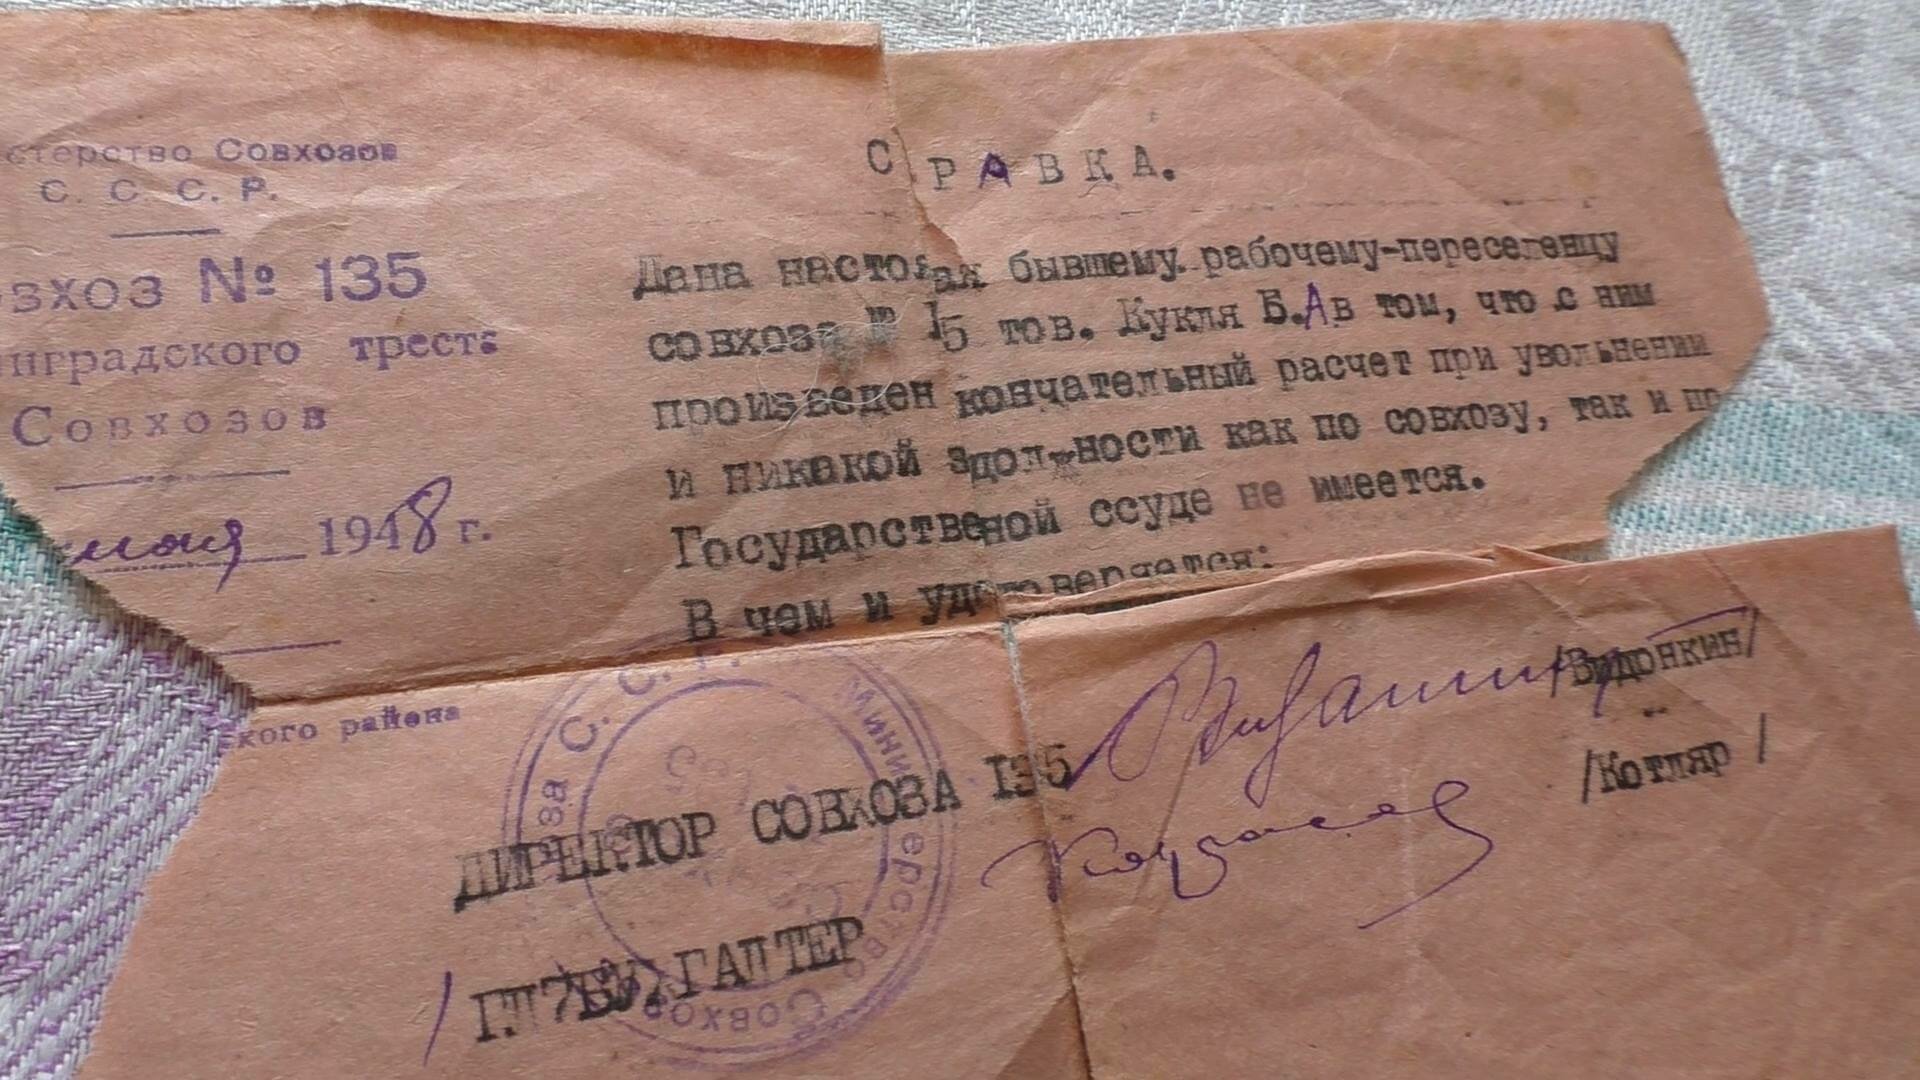 стерство Совхозов
С. С. С. Р.
вхоз № 135
нградского треста
Совхозов
1948 г.
кого района
С РАВКА.
Дана настоя ая бывшему рабочему-переселенцу
совхоза № 1 5 тов. Кукля Б.А в том, что с ним
произведен кончательный расчет при увольнении
и никакой здол-ности как по совхозу, так и по
Государственой ссуде не имеется.
В чем и удостоверяется:
ДИРЕКТОР СОВХОЗА 135
/Видонкин/
/Котляр /
ГЛ БУХГАЛТЕР
Министерство Совхозов
С. С. Р.